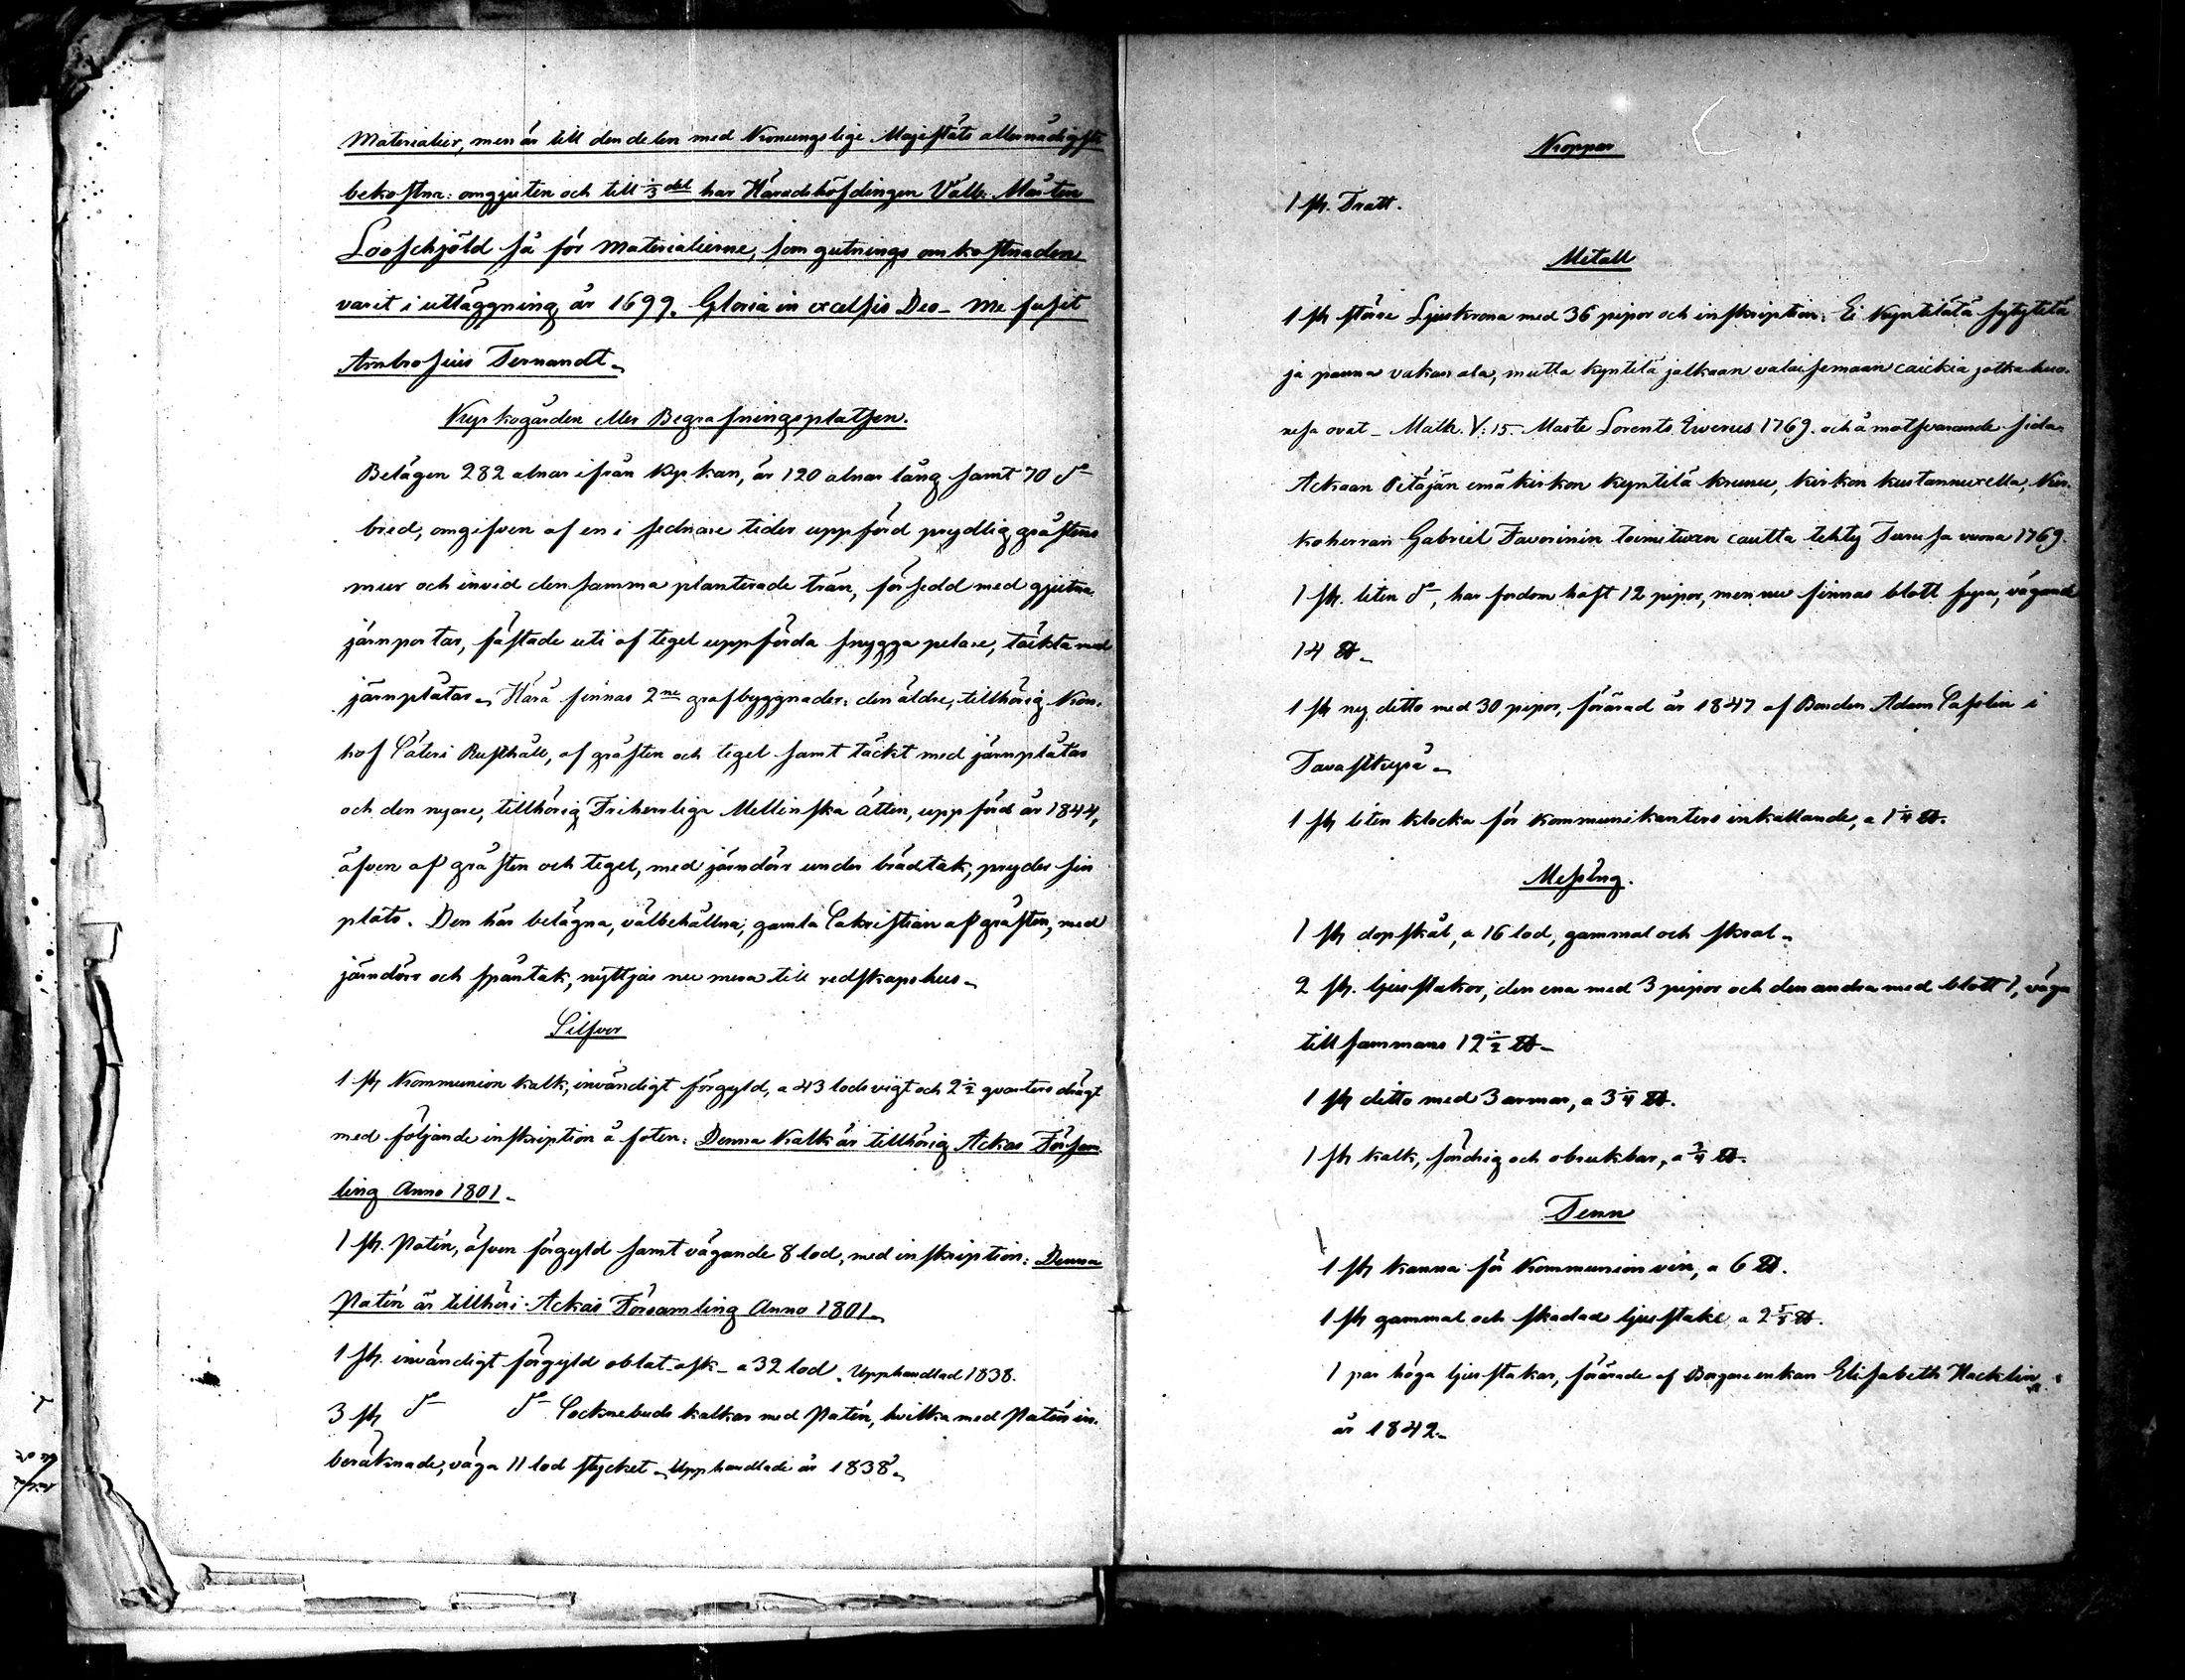 Materialier, men är till den delen med Konungslige Majestäts allernådigste
bekostna: omgjuten och till 1/3 del har Häradshöfdingen Välb. Mårten
Loofchjöld så för materialierne, som gutnings omkostnaden
varit i utläggning år 1699. Gloria in excelsis Deo - Me fusit
Ambrosius Fernandt.
Kyrkogården eller Begrafningsplatsen.
Belägen 282 alnar ifrån Kyrkan, är 120 alnar lång samt 70 d:o
bred, omgifven af en i sednare tider uppförd prydlig gråstens
mur och invid densamma planterade trän, försedd med gjutna
järnportar, fästade uti af tegel uppförda snygga pelare, täckta med
järnplåtar. Härå finnas 2ne grafbyggnader: den äldre, tillhörig Kron-
hof Säteri Rusthåll, af gråsten och tegel samt täckt med järnplåtar
och den nyare, tillhörig Friherrliga Mellinska ätten, uppförd år 1844,
äfven af gråsten och tegel, med järndörr under brädtak, pryder sin
plats. Den här belägna, välbehållna, gamla Sakristian af gråsten, med
järndörr och spåntak, nyttjas nu mera till redskapshus.
Silfver
1 st Kommunion kalk, invändigt förgyld, a 43 lods vigt och 2 1/2 qvarters drägt
med följande inskription å foten: Denna Kalk är tillhörig Ackas Försam-
ling Anno 1801.
1 st. Patén, äfven förgyld samt vägande 8 lod, med inskription: Denna
Patén är tillhöri Ackas Församling Anno 1801.
1 st. invändigt förgyld oblat-ask - a 32 lod. Upphandlad 1838.
3 st d:o d:o Socknebuds kalkar med Patén, hvilka med Patén in-
beräknade, väga 11 lod stycket. Upphandlade år 1838.
Koppar
1 st. Tratt.
Metall
1 st större Ljuskrona med 36 pipor och inskription: Ei Kynttilätä sytytetä
ja panna vakan ala, mutta kyntilä jalkaan valaisemaan caickia jotka huo-
nesa ovat - Math. V: 15. Maste Lorents Liverus 1769. och å motsvarande sida
Ackaan Pitäjän emäkirkon Kyntilä kruunu, kirkon kustannuxella, Kir-
koherran Gabriel Favorinin toimituxen cautta tehty Turusa vuona 1769.
1 st. liten d:o, har fordom haft 12 pipor, men nu finnas blott fyra, vägande
14 ℔.
1 st ny ditto med 30 pipor, förärad år 1847 af Bonden Adam Caselin i
Tavastkyrå.
1 st liten klocka för kommunikanters inkallande, a 1 1/4 ℔.
Messing.
1 st dopskål, a 16 lod, gammal och skral.
2 st. ljusstakar, den ena med 3 pipor och den andra med blott 1, väga
tillsammans 12 1/2 ℔.
1 st ditto med 3 armar, a 3 1/4 ℔.
1 st kalk, söndrig och obrukbar, a 3/4 ℔.
Tenn
1 st kanna för Kommunion vin, a 6 ℔.
1 st gammal och skadad ljusstake, a 2 5/8 ℔.
1 par höga ljusstakar, förärade af Borgareenkan Elisabeth Hacklin
år 1842.